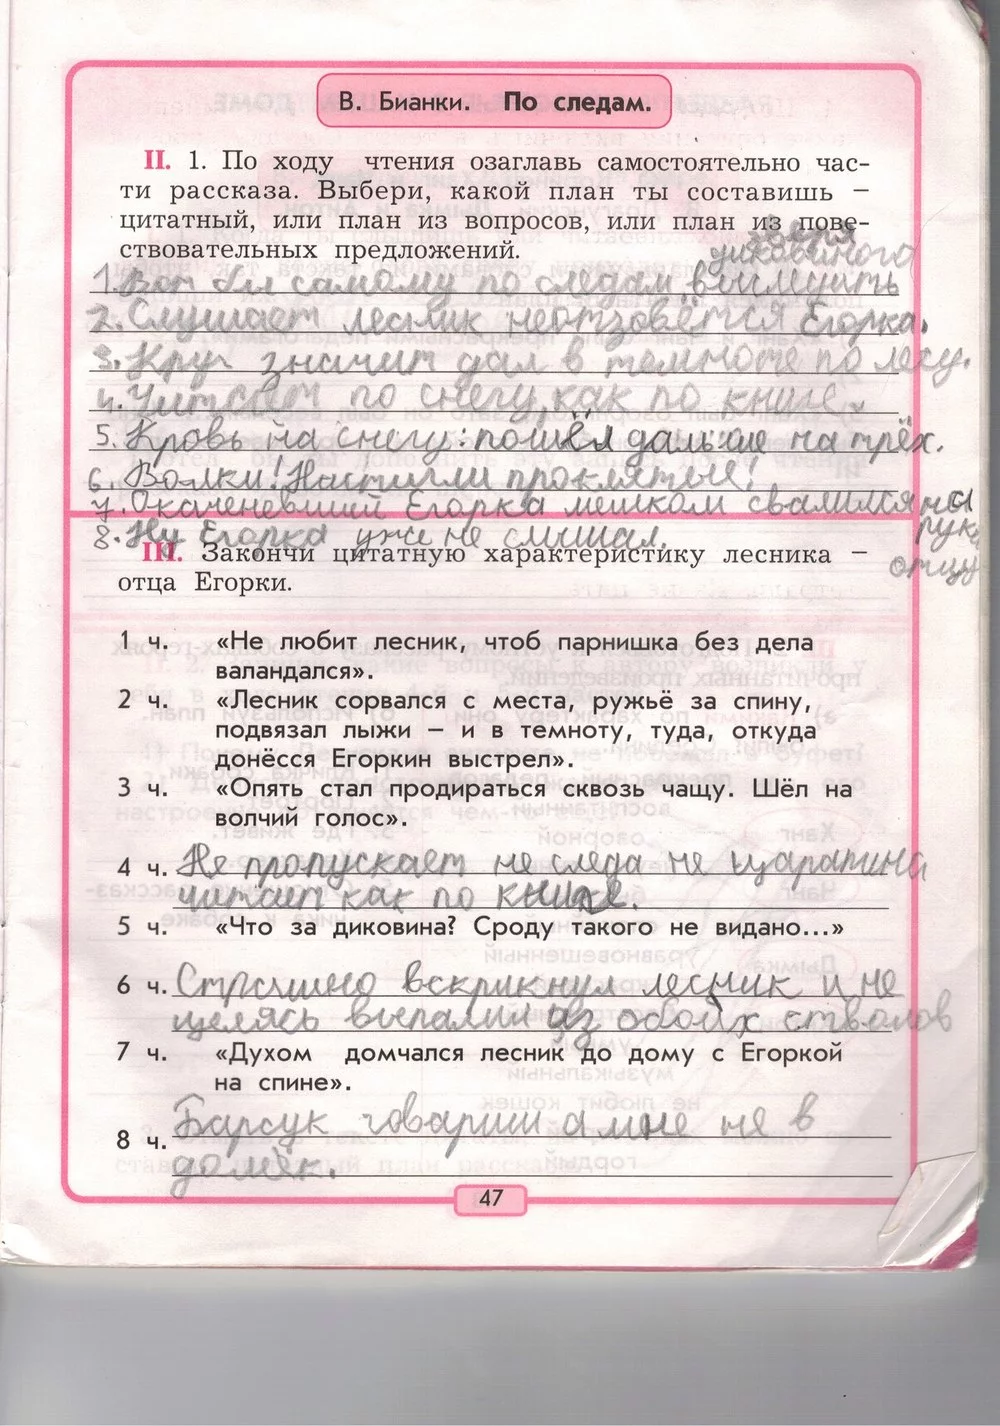 В. Бианки. По следам.
II. 1. По ходу чтения озаглавь самостоятельно час-
ти рассказа. Выбери, какой план ты составишь –
цитатный, или план из вопросов, или план из пове-
ствовательных предложений.
зверя
диковинного
1. Вот бы самому по следам выследить
2. Слушает лесник неотзовётся Егорка.
3. Круг значит дал в темноте по лесу.
4. Читает по снегу, как по книге.
5. Кровь на снегу: пошёл дальше на трёх.
6. Волки! Настигли проклятые!
7. Окаченевший Егорка мешком свалился на
руки
отцу
8. Ну Егорка уже не слышал.
III. Закончи цитатную характеристику лесника –
отца Егорки.
1 ч. «Не любит лесник, чтоб парнишка без дела
валандался».
2 ч. «Лесник сорвался с места, ружьё за спину,
подвязал лыжи – и в темноту, туда, откуда
донёсся Егоркин выстрел».
3 ч. «Опять стал продираться сквозь чащу. Шёл на
волчий голос».
4 ч. Не пропускает не следа не царапина
читает как по книге.
5 ч. «Что за диковина? Сроду такого не видано...»
6 ч. Страшно вскрикнул лесник и не
целясь выпалил из обоих стволов
7 ч. «Духом домчался лесник до дому с Егоркой
на спине».
8 ч. Барсук говориш а мне не в
домёк.
47